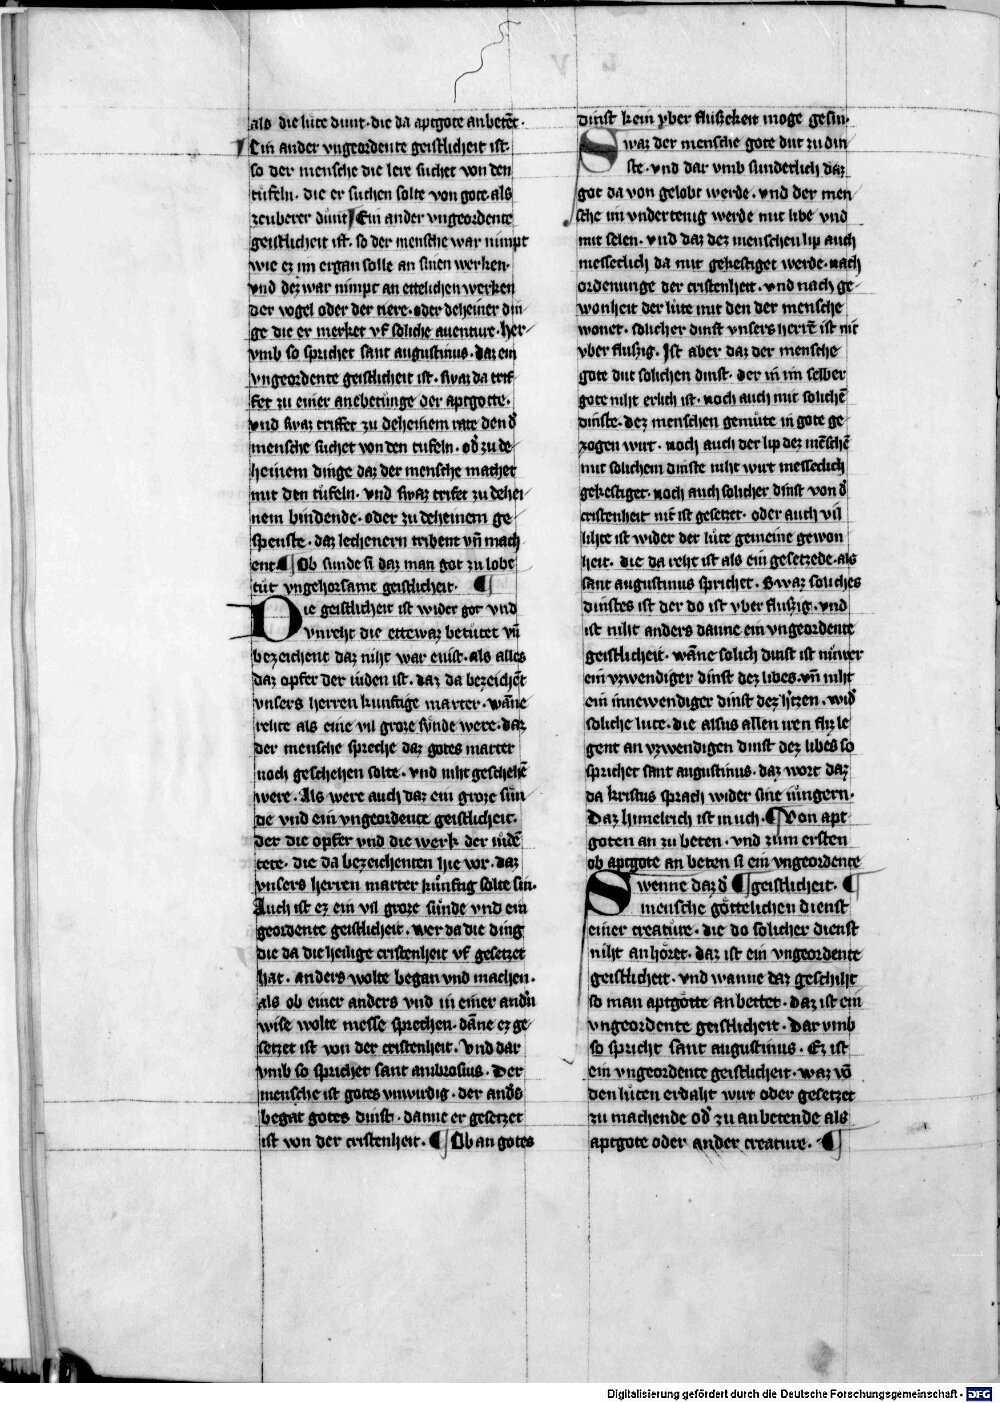 als die lu̍te dunt · die da aptgote anbetēt ·
Ein ander vngeordente geistlicheit ist ·
so der mensche die lere suchet von den
tu̍feln · die er suchen solte von gote · als
zeuberer du̍nt Ein ander vngeordente
geistlicheit ist · so der mensche war nimpt
wie ez im ergan solle an sinen werken ·
vnd dez war nimpt an ettelichen werken
der vogel oder der tiere · oder deheiner din
ge die er merket vf soliche auenture · her
vmb so sprichet sant augustinus · daz ein
vngeordente geistlicheit ist · swaz da trif
fet zu einer anebetunge der aptgotte ·
vnd swaz triffet zu deheinem rate den d̓
mensche suchet von den tufeln · od̓ zu de
heinem dinge daz der mensche machet
mit den tu̍feln · vnd swaz trifet zu dehei
nem bindende · oder zu deheinem ge
spenste · daz lechenern tribent vn̄ mach
ent ¶ Ob sunde si daz man got zu lobe
tu̍t vngehorsame geistlicheit · ¶
Die geistlicheit ist wider got vnd
vnreht die ettewaz betu̍tet vn̄
bezeichent daz niht war enist · als alles
daz opfer der iuden ist · daz da bezeichēt
vnsers herren kunftige marter · wāne
rehte als eine vil groze su̍nde were · daz
der mensche spreche daz gotes marter
noch geschehen solte · vnd niht geschehē
were · Als were auch daz ein groze sun
de vnd ein vngeordente geistlicheit ·
der die opfer vnd die werk der iu̍dē
tete · die da bezeichenten hie vor · daz
vnsers herren marter ku̍nftig solte sin ·
Auch ist ez ein vil groze su̍nde vnd ein
geordente geistlicheit · wer da die ding
die da die heilige cristenheit vf gesetzet
hat · anders wolte began vnd machen ·
als ob einer anders vnd in einer and̓n
wise wolte messe sprechen · dāne ez ge
setzet ist von der cristenheit · Vnd dar
vmb so sprichet sant ambrosius · Der
mensche ist gotes vnwirdig · der and̓s
begat gotes dinst · danne er gesetzet
ist von der cristenheit · ¶ Ob an gotes
dinst kein vber flußekeit moge gesin ·
Swaz der mensche gote dut zu din
ste · vnd dar vmb sunderlich daz
got da von gelobt werde · vnd der men
sche im vndertenig werde mit libe vnd
mit selen · vnd daz dez menschen lip auch
messeclich da mit gekestiget werde · nach
ordenunge der cristenheit · vnd nach ge
wonheit der lu̍te mit den der mensche
wonet · solicher dinst vnsers herrē ist nit
vber fluszig · Ist aber daz der mensche
gote dut solichen dinst · der in im selber
gote niht erlich ist · noch auch mit solichē
dinste · dez menschen gemu̍te in gote ge
zogen wirt · noch auch der lip dez mēschē
mit solichem dinste niht wirt messeclich
gekestiget · noch auch solicher dinst von d̓
cristenheit nit ist gesetzet · oder auch vil
lihte ist wider der lu̍te gemeine gewon
heit · die da reht ist als ein gesetzede · als
sant augustinus sprichet · Swaz soliches
dinstes ist der do ist vber fluszig · vnd
ist niht anders danne ein vngeordente
geistlicheit · wāne solich dinst ist nu̍wer
ein vzwendiger dinst dez libes · vn̄ niht
ein innewendiger dinst dez h̓tzen · wid̓
soliche lute · die alsus allen iren fliz le
gent an vzwendigen dinst dez libes so
sprichet sant augustinus · daz wort daz
da kristus sprach wider sine iu̍ngern ·
Daz himelrich ist in uch · ¶ Von apt
goten an zu beten · vnd zum ersten
ob aptgote an beten si ein vngeordente
Swenne daz d̓ ¶ geistlicheit · ¶
mensche go̍ttelichen dienst
einer creature · die do solicher dienst
niht anho̍ret · daz ist ein vngeordente
geistlicheit · vnd wanne daz geschiht
so man aptgo̍tte anbettet · daz ist ein
vngeordente geistlicheit · Dar vmb
so spricht sant augustinus · Ez ist
ein vngeordente geistlicheit · waz vō
den lu̍ten erdaht wirt oder gesetzet
zu machende od̓ zu anbetende als
aptgote oder ander creature · ¶
Digitalisierung gefördert durch die Deutsche Forschungsgemeinschaft · DFG